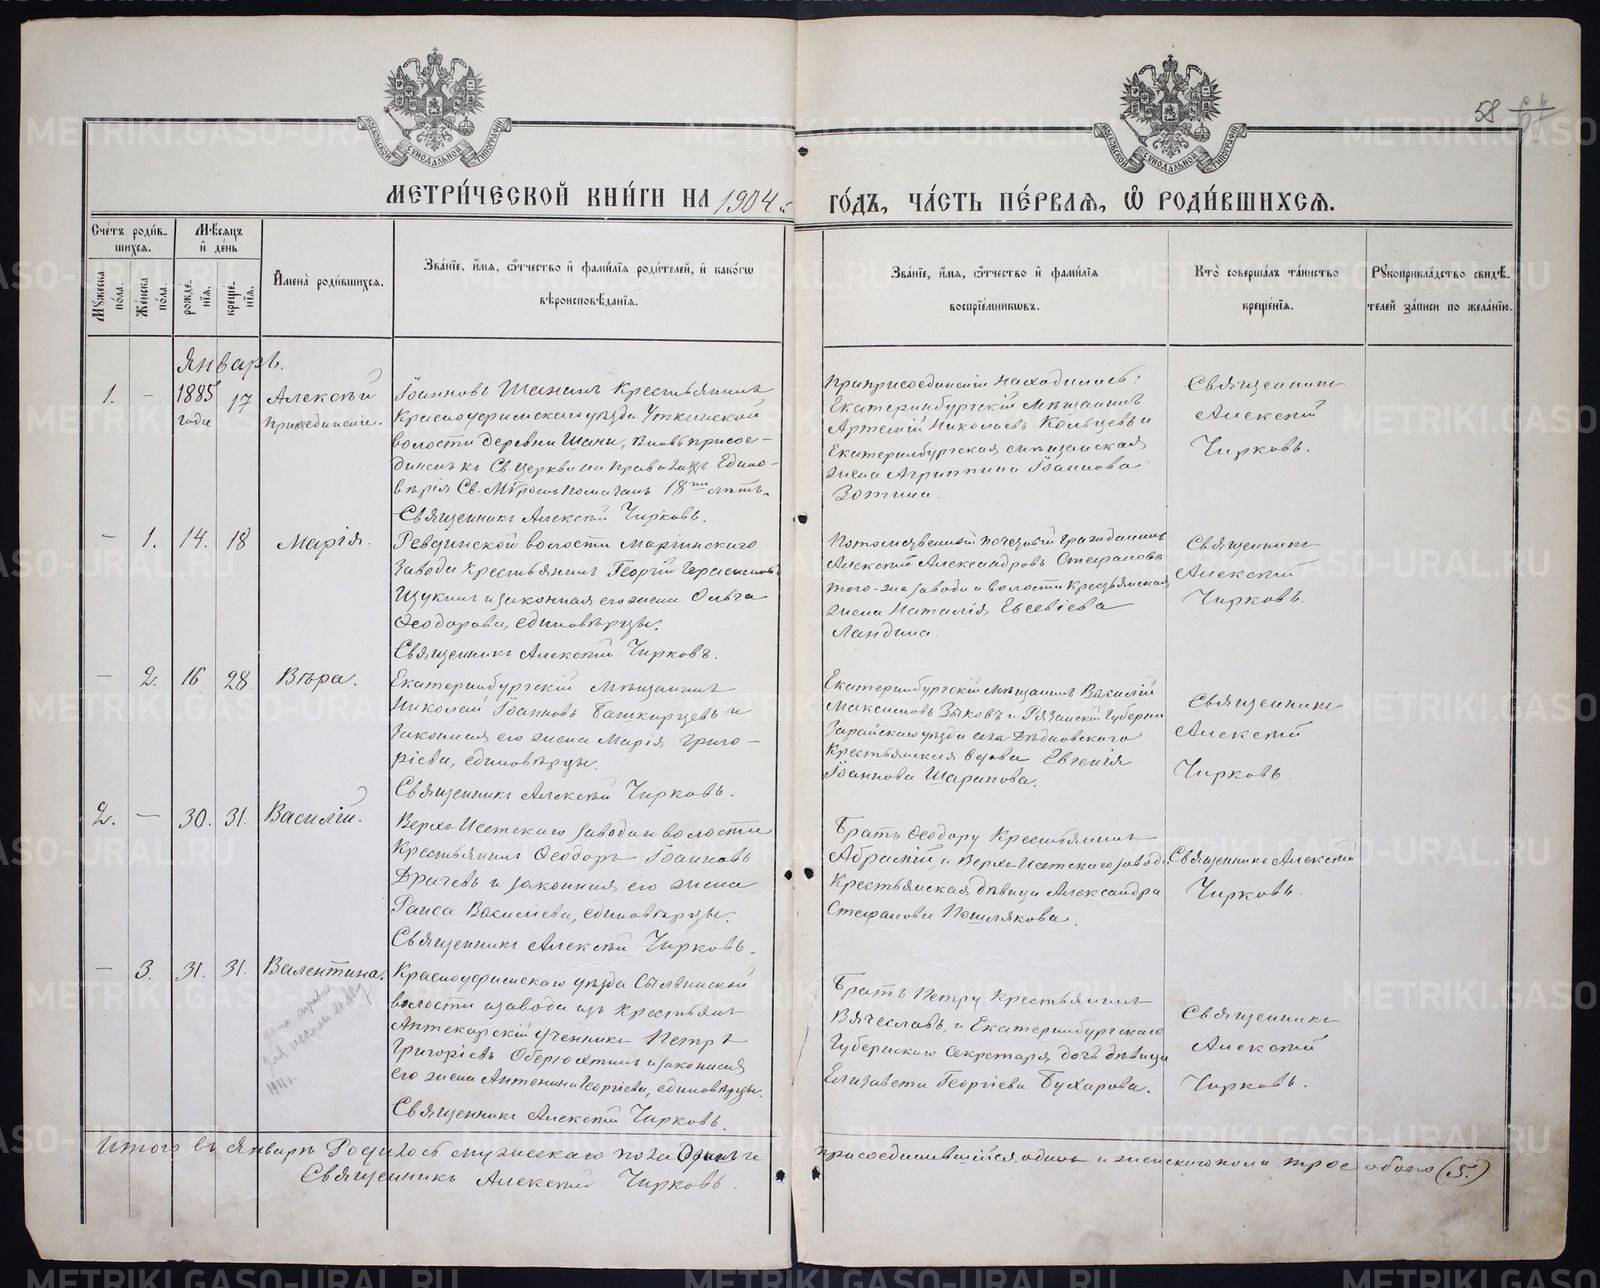 МЕТРИЧЕСКОЙ КНИГИ НА 1904 й
ГОДЪ, ЧАСТЬ ПЕРВАЯ, Ѡ РОДИВШИХСЯ.
58
МОСКОВСКОЙ СѴНОДАЛЬНОЙ ТИПОГРАФІИ
МОСКОВСКОЙ СѴНОДАЛЬНОЙ ТИПОГРАФІИ
Счетъ родив-
шихся.
Мужеска пола.
Женска пола.
Мѣсяцъ
и день
рожде-
нія.
креще-
нія.
Имена родившихся.
Званіе, имя, отчество и фамилія родителей, и какогѡ
вѣроисповѣданія.
Званіе, имя, отчество и фамилія
воспріемниковъ.
Кто совершалъ таинство
крещенія.
Рукоприкладство свидѣ-
телей записи по желанію.
Январь.
1. - 1885 года 17
Алексѣй
Присоединеніе.
Іоанновъ Шанинъ Крестьянинъ
Красноуфимскаго уѣзда Уткинской
волости деревни Шани, вновь присое-
диненъ къ Св. церкви на правилахъ Едино-
вѣрія Св. Мѵромъ помазанъ 18ти лѣтъ.
Священникъ Алексѣй Чирковъ.
При присоединеніи находились:
Екатеринбургскій мѣщанинъ
Артемій Николаевъ Кольцевъ и
Екатеринбургская мѣщанская
жена Агриппина Іоаннова
Зотина.
Священникъ
Алексѣй
Чирковъ.
- 1. 14. 18
Марія.
Ревдинской волости Маріинскаго
завода Крестьянинъ Георгій Герасимовъ
Щукинъ и законная его жена Ольга
Ѳеодорова, единовѣрцы.
Священникъ Алексѣй Чирковъ.
Потомственный почетный гражданинъ
Алексѣй Александровъ Стефановъ
того-же завода и волости крестьянская
жена Наталія Евсевіева
Ландина.
Священникъ
Алексѣй
Чирковъ.
- 2. 16 28
Вѣра.
Екатеринбургскій мѣщанинъ
Николай Іоанновъ Башкирцевъ и
законная его жена Марія Григо-
ріева, единовѣрцы.
Священникъ Алексѣй Чирковъ.
Екатеринбургскій мѣщанинъ Василій
Максимовъ Зыковъ и Рязанской губерніи
Зарайскаго уѣзда села Дѣдновскаго
крестьянская вдова Евгенія
Іоаннова Шарапова.
Священникъ
Алексѣй
Чирковъ.
2. - 30. 31.
Василій.
Верхъ-Исетскаго завода и волости
Крестьянинъ Ѳеодоръ Іоанновъ
Драчевъ и законная его жена
Раиса Василіева, единовѣрцы.
Священникъ Алексѣй Чирковъ.
Братъ Ѳеодору Крестьянинъ
и Верхъ-Исетскаго завода
Крестьянская дѣвица Александра
Стефанова Пошлякова.
Священникъ Алексѣй
Чирковъ.
- 3. 31. 31.
Валентина.
Красноуфимскаго уѣзда Сылвинской
волости и завода изъ крестьянъ
Аптекарскій ученикъ Петръ
Григоріевъ Оберюхтинъ и законная
его жена Антонина Георгіева, единовѣрцы.
Священникъ Алексѣй Чирковъ.
Братъ Петру Крестьянинъ
Вячеславъ, и Екатеринбургскаго
Губернскаго Секретаря дочь дѣвица
Елизавета Георгіева Бухарова.
Священникъ
Алексѣй
Чирковъ.
Итого въ Январѣ Родилось мужескаго пола Одинъ и
присоединившійся одинъ и женскаго пола трое обоего (5.)
Священникъ Алексѣй Чирковъ.
METRIKI.GASO-URAL.RU